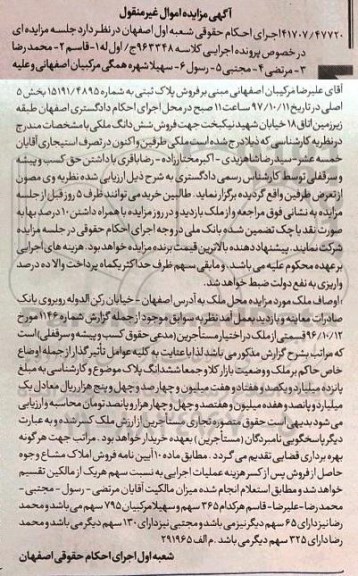 آگهی مزایده اموال غیرمنقول
۴۱۷۰۷/۴۷۷۲۰ اجرای احکام حقوقی شعبه اول اصفهان در نظر دارد جلسه مزایده ای
در خصوص پرونده اجرایی کلاسه ۹۶۳۳۴۸ ج/ اول له ۱- قاسم ۲- محمدرضا
۳- مرتضی ۴- مجتبی ۵- رسول ۶- سهیلا شهره همگی مرکبیان اصفهانی و علیه
آقای علیرضا مرکبیان اصفهانی مبنی بر فروش پلاک ثبتی به شماره ۱۵۱۹۱/۴۸۹۵ بخش ۵
اصلی در تاریخ ۹۷/۱۰/۱۱ ساعت ۱۱ صبح در محل اجرای احکام دادگستری اصفهان طبقه
زیرزمین اتاق ۱۸ خیابان شهید نیکبخت جهت فروش شش دانگ ملکی با مشخصات مندرج
در نظریه کارشناسی که ذیلا درج شده است ملکی طرفین و اکنون در تصرف استیجاری آقایان
خمسه عشر- سید رضا شاهزیدی - اکبر مختارزاده - رضا باقری با داشتن حق کسب و پیشه
و سرقفلی توسط کارشناس رسمی دادگستری به شرح ذیل ارزیابی شده نظریه وی مصون
از تعرض طرفین واقع گردیده برگزار نماید. طالبین خرید می توانند ظرف ۵ روز قبل از جلسه
مزایده به نشانی فوق مراجعه و از ملک بازدید و در روز مزایده با همراه داشتن ۱۰ درصد بها به
صورت نقد یا چک تضمین شده بانک ملی در وجه اجرای احکام حقوقی در جلسه مزایده
شرکت نمایند. پیشنهاد دهنده بالاترین قیمت برنده مزایده خواهد بود. هزینه های اجرایی
بر عهده محکوم علیه می باشد. و مابقی سهم ظرف حداکثر یکماه پرداخت والا ده درصد
واریزی به نفع دولت ضبط خواهد شد.
اوصاف ملک مورد مزایده محل ملک به آدرس اصفهان - خیابان رکن الدوله روبروی بانک
صادرات معاینه و بازدید بعمل آمد نظر به سوابق موجود از جمله گزارش شماره ۱۱۴۶ مورخ
۹۶/۱۰/۱۲ قسمتی از ملک در اختیار مستأجرین (مدعی حقوق کسب و پیشه و سرقفلی) است
که مراتب بشرح گزارش مذکور می باشد لذا با عنایت به کلیه عوامل تأثیرگذار از جمله اوضاع
خاص حاکم بر ملک و وضعیت بازار کلا و جمعا ششدانگ پلاک موضوع و کارشناسی به مبلغ
پانزده میلیارد و یکصد و هفتاد و هفت میلیون و چهارصد و چهل و پنج هزار ریال معادل یک
میلیارد و پانصد و هفده میلیون و هفتصد و چهل و چهار هزار و پانصد تومان محاسبه و ارزیابی
می شود بدیهی است حقوق متصوره تجاری مستأجرین از ارزش ملک کسر شده و به عبارت
دیگر پاسخگویی نامبردگان (مستأجرین) بعهده خریدار خواهد بود. مراتب جهت هر گونه
بهره برداری قضایی تقدیم می گردد. مطابق ماده ۱۰ آیین نامه فروش املاک مشاع و جوه
حاصل از فروش پس از کسر هزینه عملیات اجرایی به نسبت سهم هریک از مالکین تقسیم
خواهد شد و مطابق استعلام انجام شده میزان مالکیت آقایان مرتضی - رسول - مجتبی -
محمدرضا- علیرضا- قاسم هر کدام ۳۶۵ سهم و سهیلا مرکبیان ۷۹۵ سهم می باشد و محمد
رضا نیز دارای ۶۵ سهم دیگر نیز می باشد و مجتبی نیز دارای ۱۳۰ سهم دیگر می باشد و محمد
رضا دارای ۳۲۵ سهم دیگر می باشد. م الف ۲۹۱۹۶۵
شعبه اول اجرای احکام حقوقی اصفهان